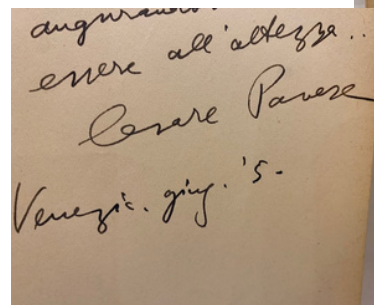 augurando
essere all'altezza..
Cesare Pavese
Venezia. giug. '5-